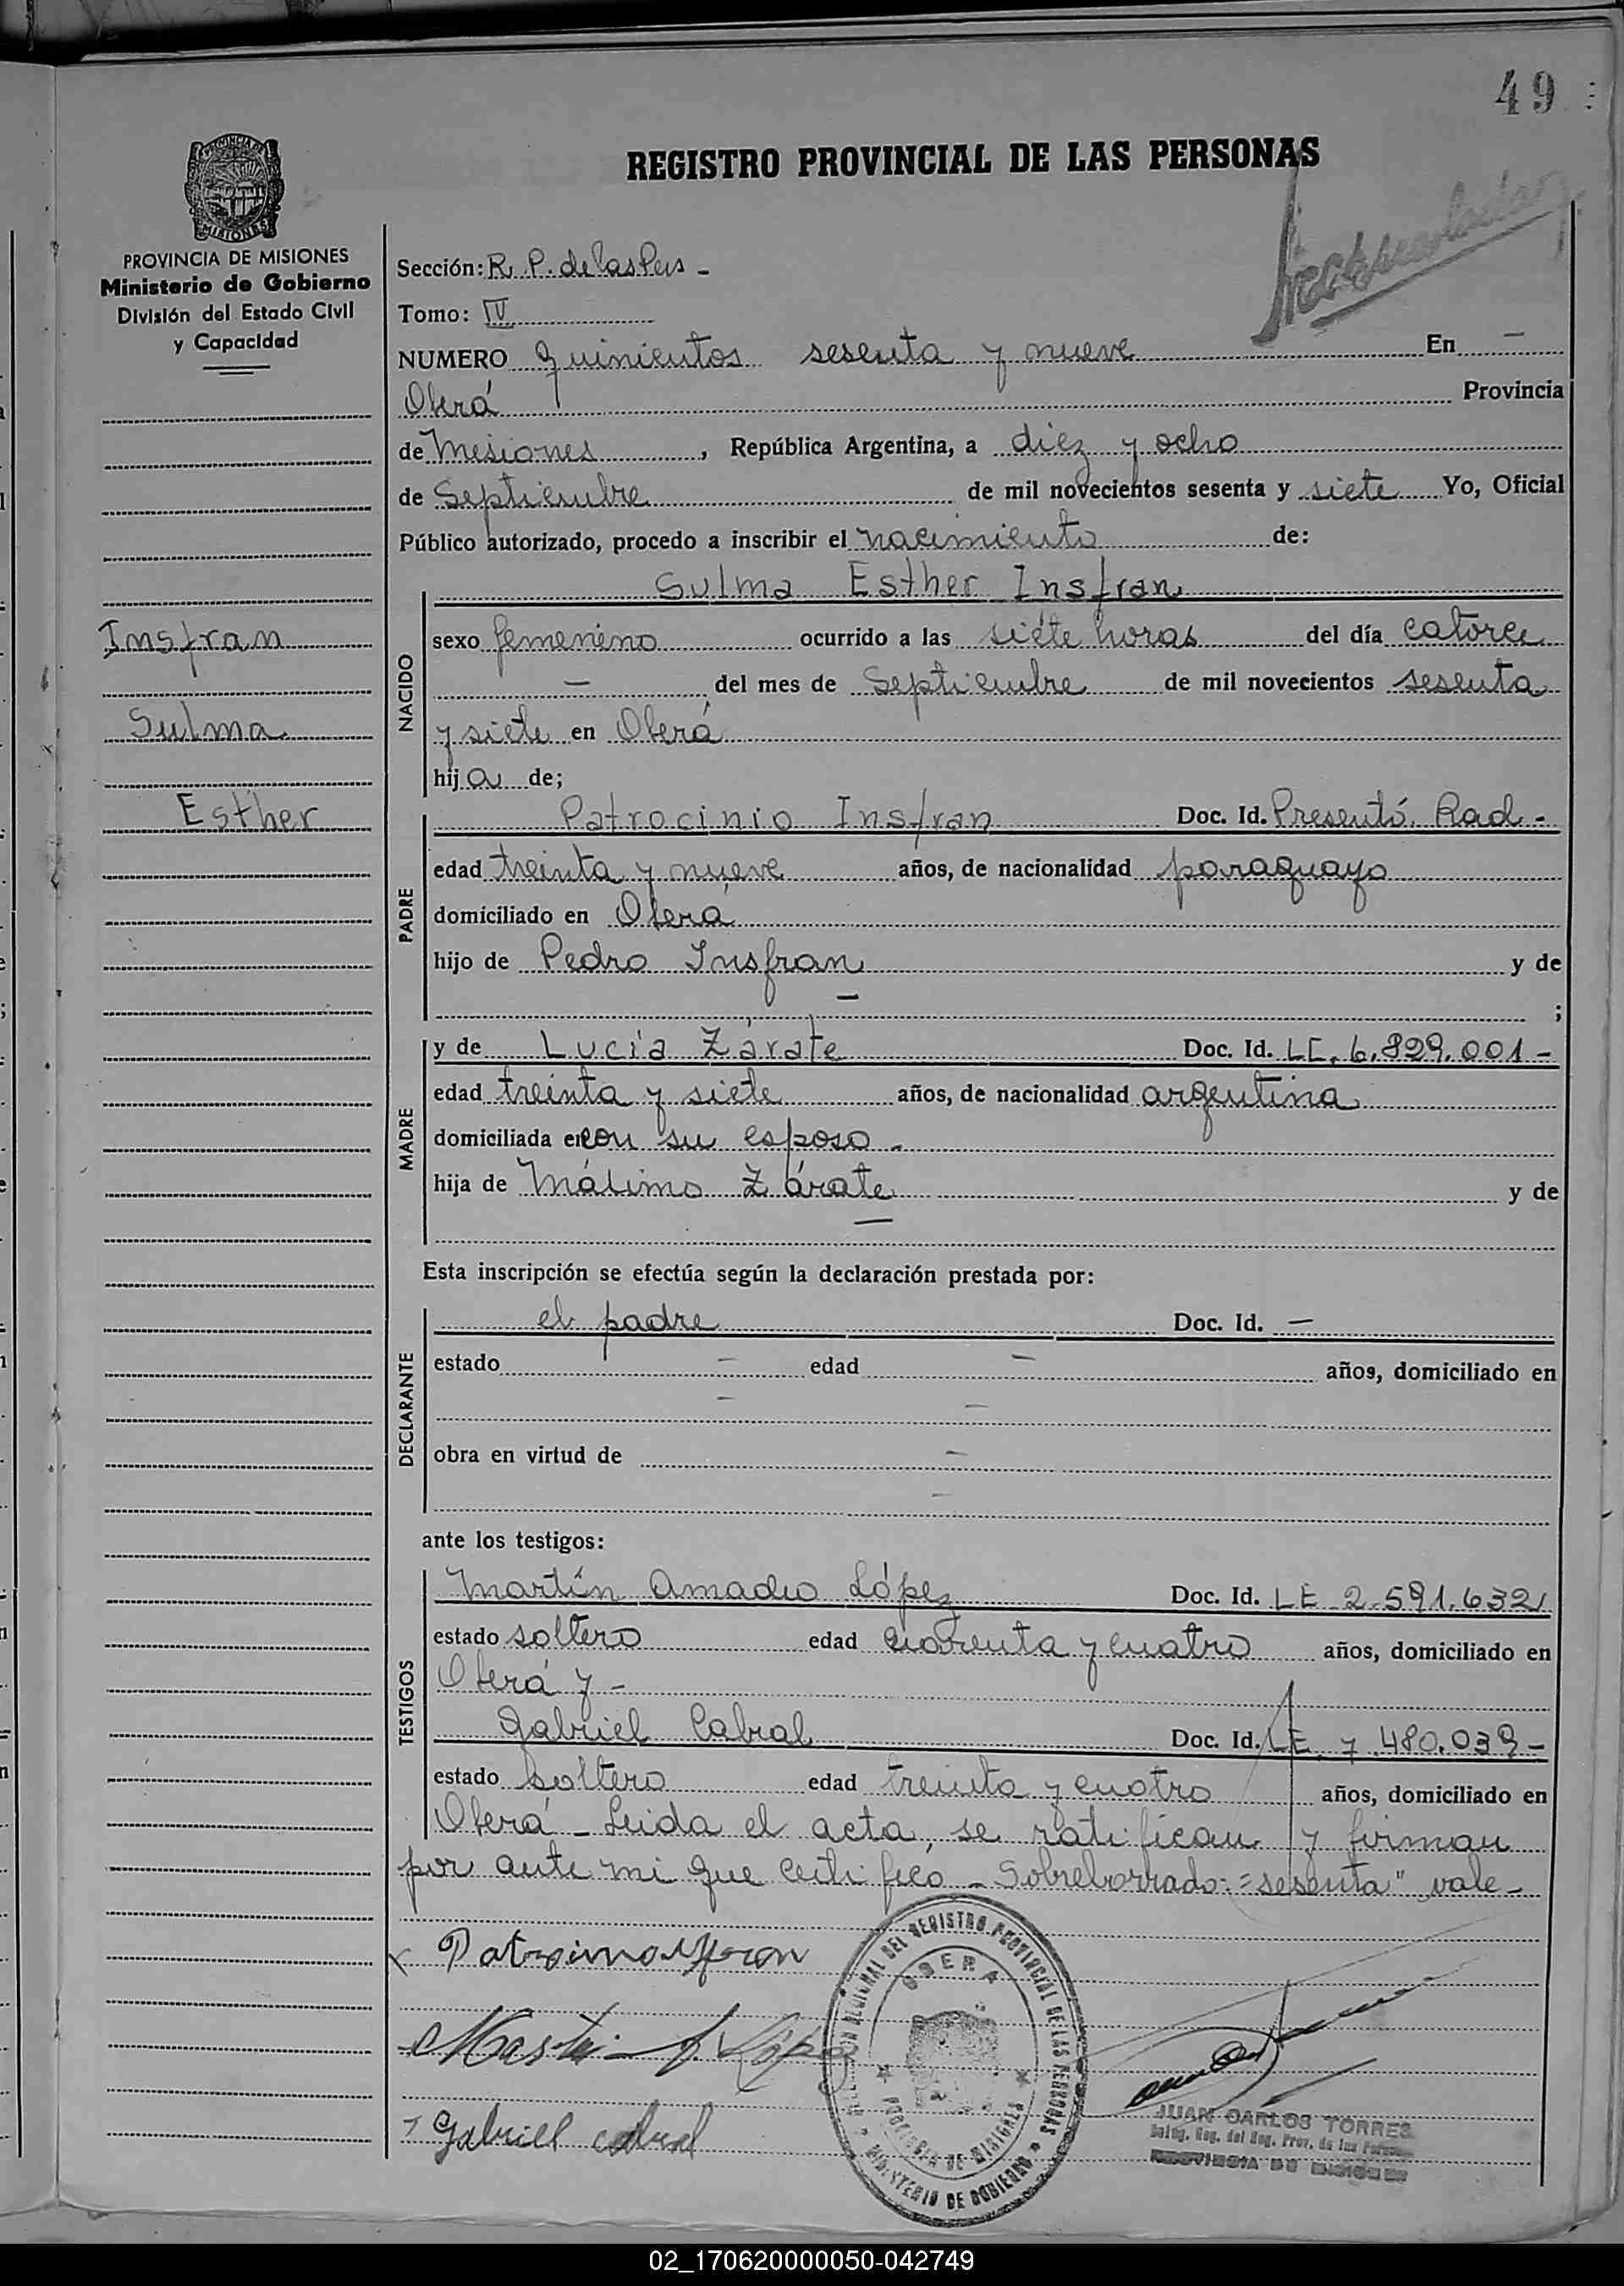 49
REGISTRO PROVINCIAL DE LAS PERSONAS
PROVINCIA DE MISIONES
Ministerio de Gobierno
División del Estado Civil
y Capacidad
Insfran
Sulma
Esther
Sección: R. P. de las Pers -
Tomo: IV
NUMERO quinientos sesenta y nueve En —
Oberá Provincia
de Misiones, República Argentina, a diez y ocho
de Septiembre de mil novecientos sesenta y siete Yo, Oficial
Público autorizado, procedo a inscribir el nacimiento de:
Sulma Esther Insfran
NACIDO
sexo femenino ocurrido a las siete horas del día catorce
— del mes de Septiembre de mil novecientos sesenta
y siete en Oberá
hija de;
PADRE
Patrocinio Insfran Doc. Id. Presentó Rad -
edad treinta y nueve años, de nacionalidad paraguayo
domiciliado en Oberá
hijo de Pedro Insfran y de
— ;
MADRE
y de Lucía Zárate Doc. Id. LC. 6.829.001 -
edad treinta y siete años, de nacionalidad argentina
domiciliada en con su esposo -
hija de Máximo Zárate y de
—
Esta inscripción se efectúa según la declaración prestada por:
DECLARANTE
el padre Doc. Id. —
estado — edad — años, domiciliado en
— —
obra en virtud de —
—
ante los testigos:
TESTIGOS
Martín Amadeo López Doc. Id. LE 2.591.632
estado soltero edad cuarenta y cuatro años, domiciliado en
Oberá y -
Gabriel Cabral Doc. Id. LE. 7.480.039 -
estado soltero edad treinta y cuatro años, domiciliado en
Oberá - Leida el acta, se ratifican y firman
por ante mi que certifico - Sobreborrado: "sesenta" vale -
Gabriel Cabral
DELEGACION REGIONAL DEL REGISTRO PROVINCIAL DE LAS PERSONAS
OBERA
PROVINCIA DE MISIONES
MINISTERIO DE GOBIERNO
JUAN CARLOS TORRES
Deleg. Reg. del Reg. Prov. de las Personas
PROVINCIA DE MISIONES
02_170620000050-042749